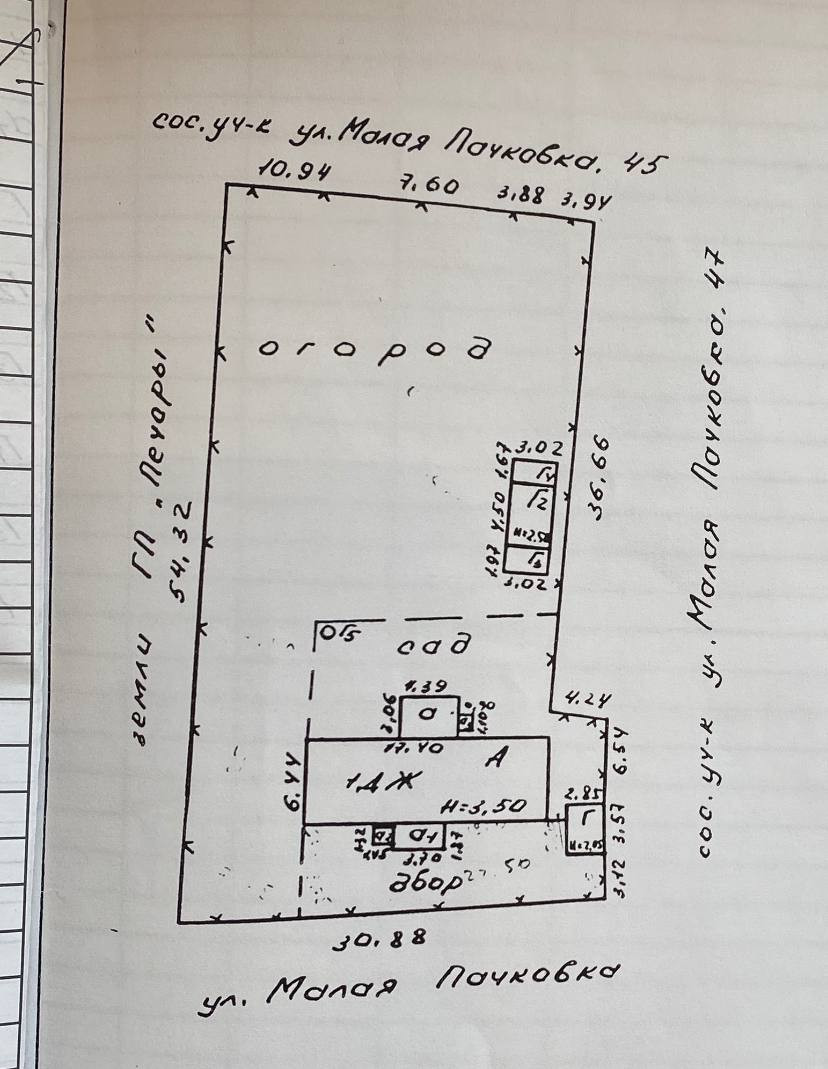 сос. уч-к ул. Малая Пачковка. 45
10.94 7.60 3.88 3.94
огород
земли ГП „Печоры"
54.32
3.02
1.67 Г4
4.50 Г2
Н=2.50
1.97 Г3
3.02
36.66
сос. уч-к ул. Малая Пачковка. 47
Г5
сад
4.39
3.06 а
4.24
6.54
17.40
А
6.44
1ДЖ
Н=3,50
2.85
Г
3.57
Н=2,05
1.32 а2 а1 1.87
3.70
3.12
двор
30.88
ул. Малая Пачковка